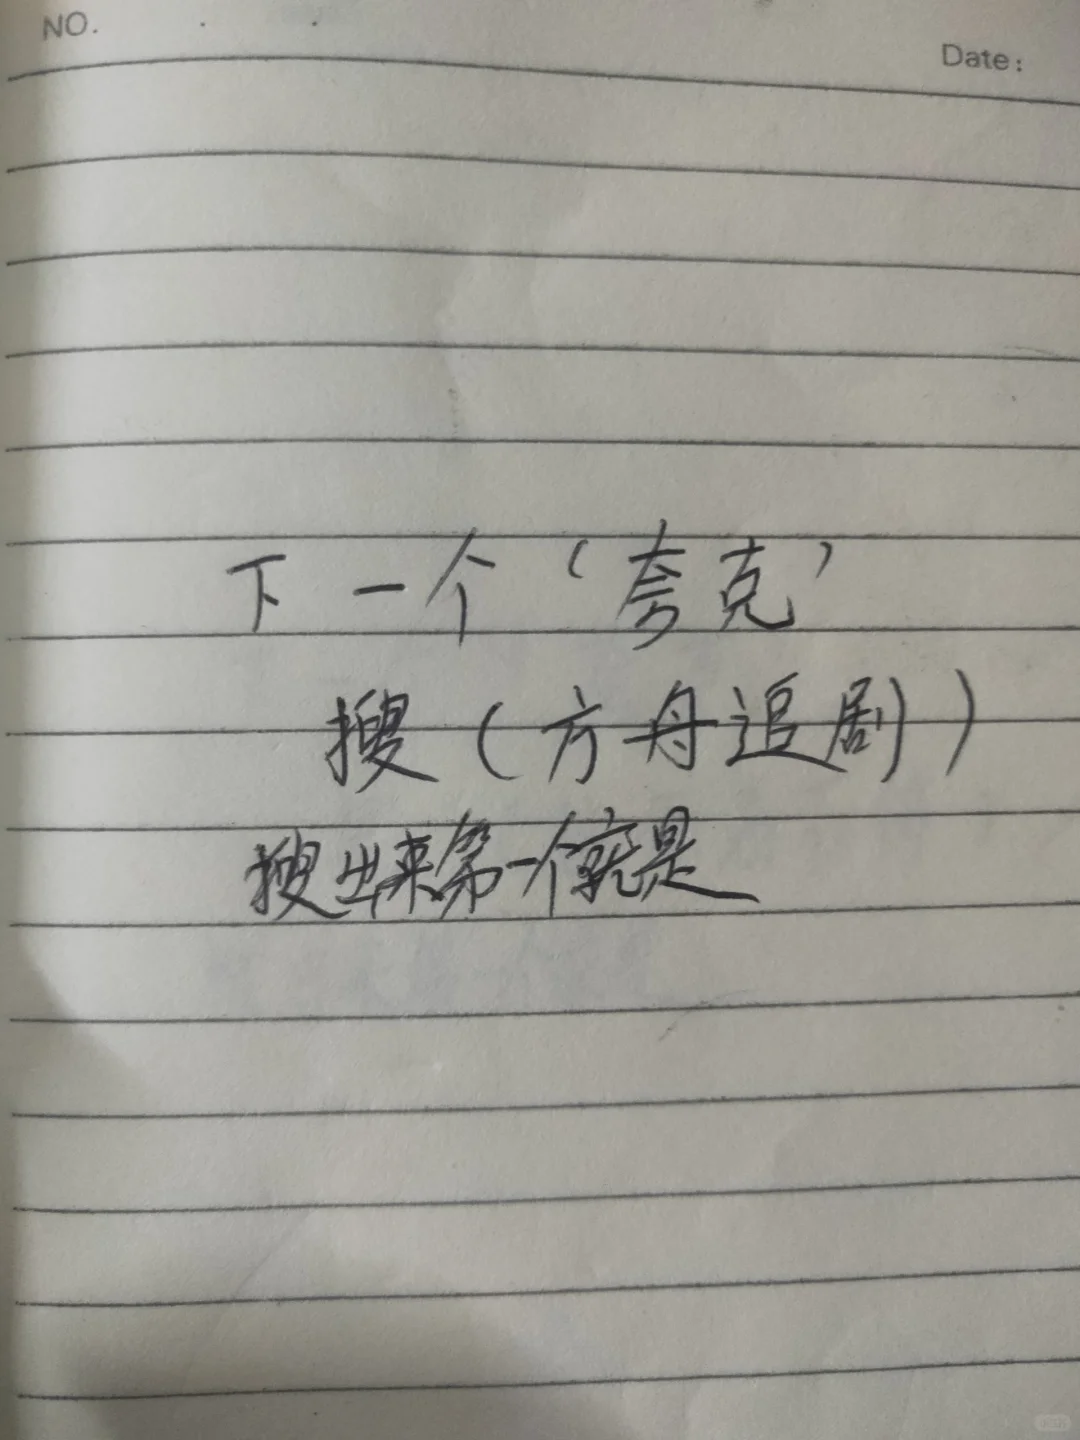 NO.
Date:
下一个‘夸克’
搜（方舟追剧）
搜出来第一个就是